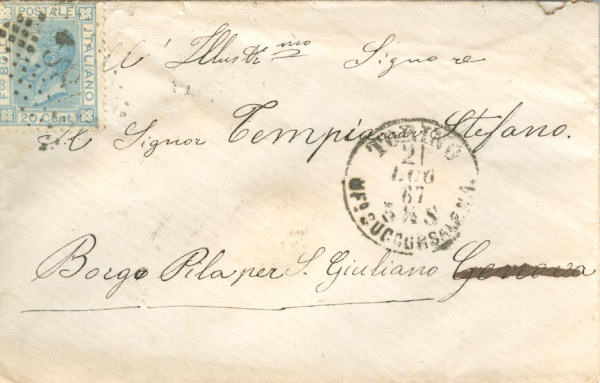 FCO BOLLO
POSTALE
ITALIANO
20 Cent.
All' Illustrmo Signore
Il Signor Tempia Stefano.
TORINO
21
LUG
67
5½ S
UFO SUCCURSALE N.A.
Borgo Pila per S. Giuliano Genova